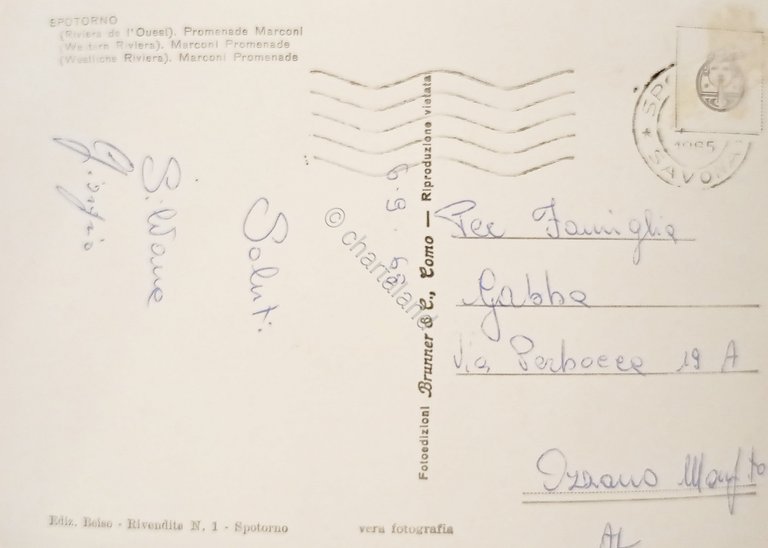 SPOTORNO
(Riviera de l'Ouest). Promenade Marconi
(Western Riviera). Marconi Promenade
(Westliche Riviera). Marconi Promenade
Saluti
Silvana
Giorgio
6.9.65
© chartaland
Fotoedizioni Brunner & C., Como — Riproduzione vietata
SAVONA
Per Famiglia
Gabba
Via Perbocca 19 A
Ozzano Monf to
AL
Ediz. Beiso - Rivendita N. 1 - Spotorno
vera fotografia